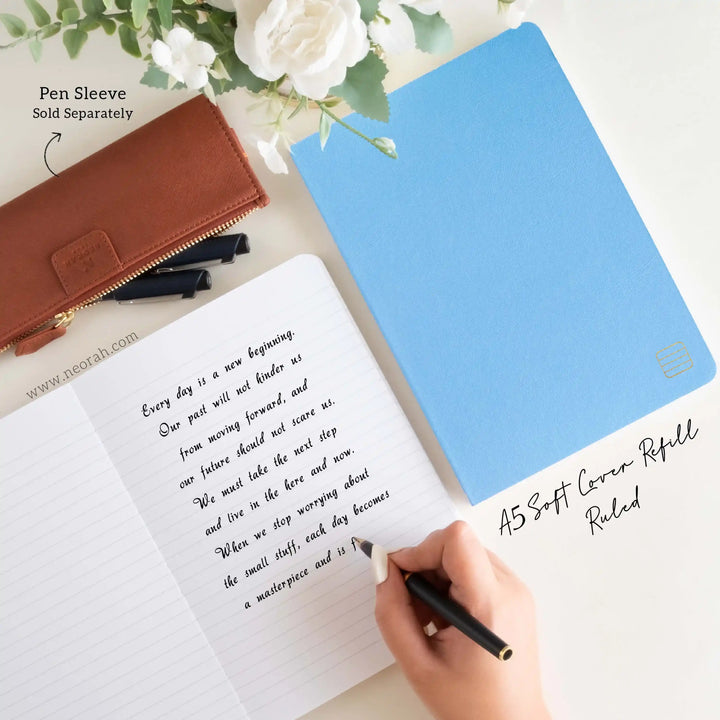 Pen Sleeve
Sold Separately
www.neorah.com
Every day is a new beginning.
Our past will not hinder us
from moving forward, and
our future should not scare us.
We must take the next step
and live in the here and now.
When we stop worrying about
the small stuff, each day becomes
a masterpiece and is f
A5 Soft Cover Refill
Ruled